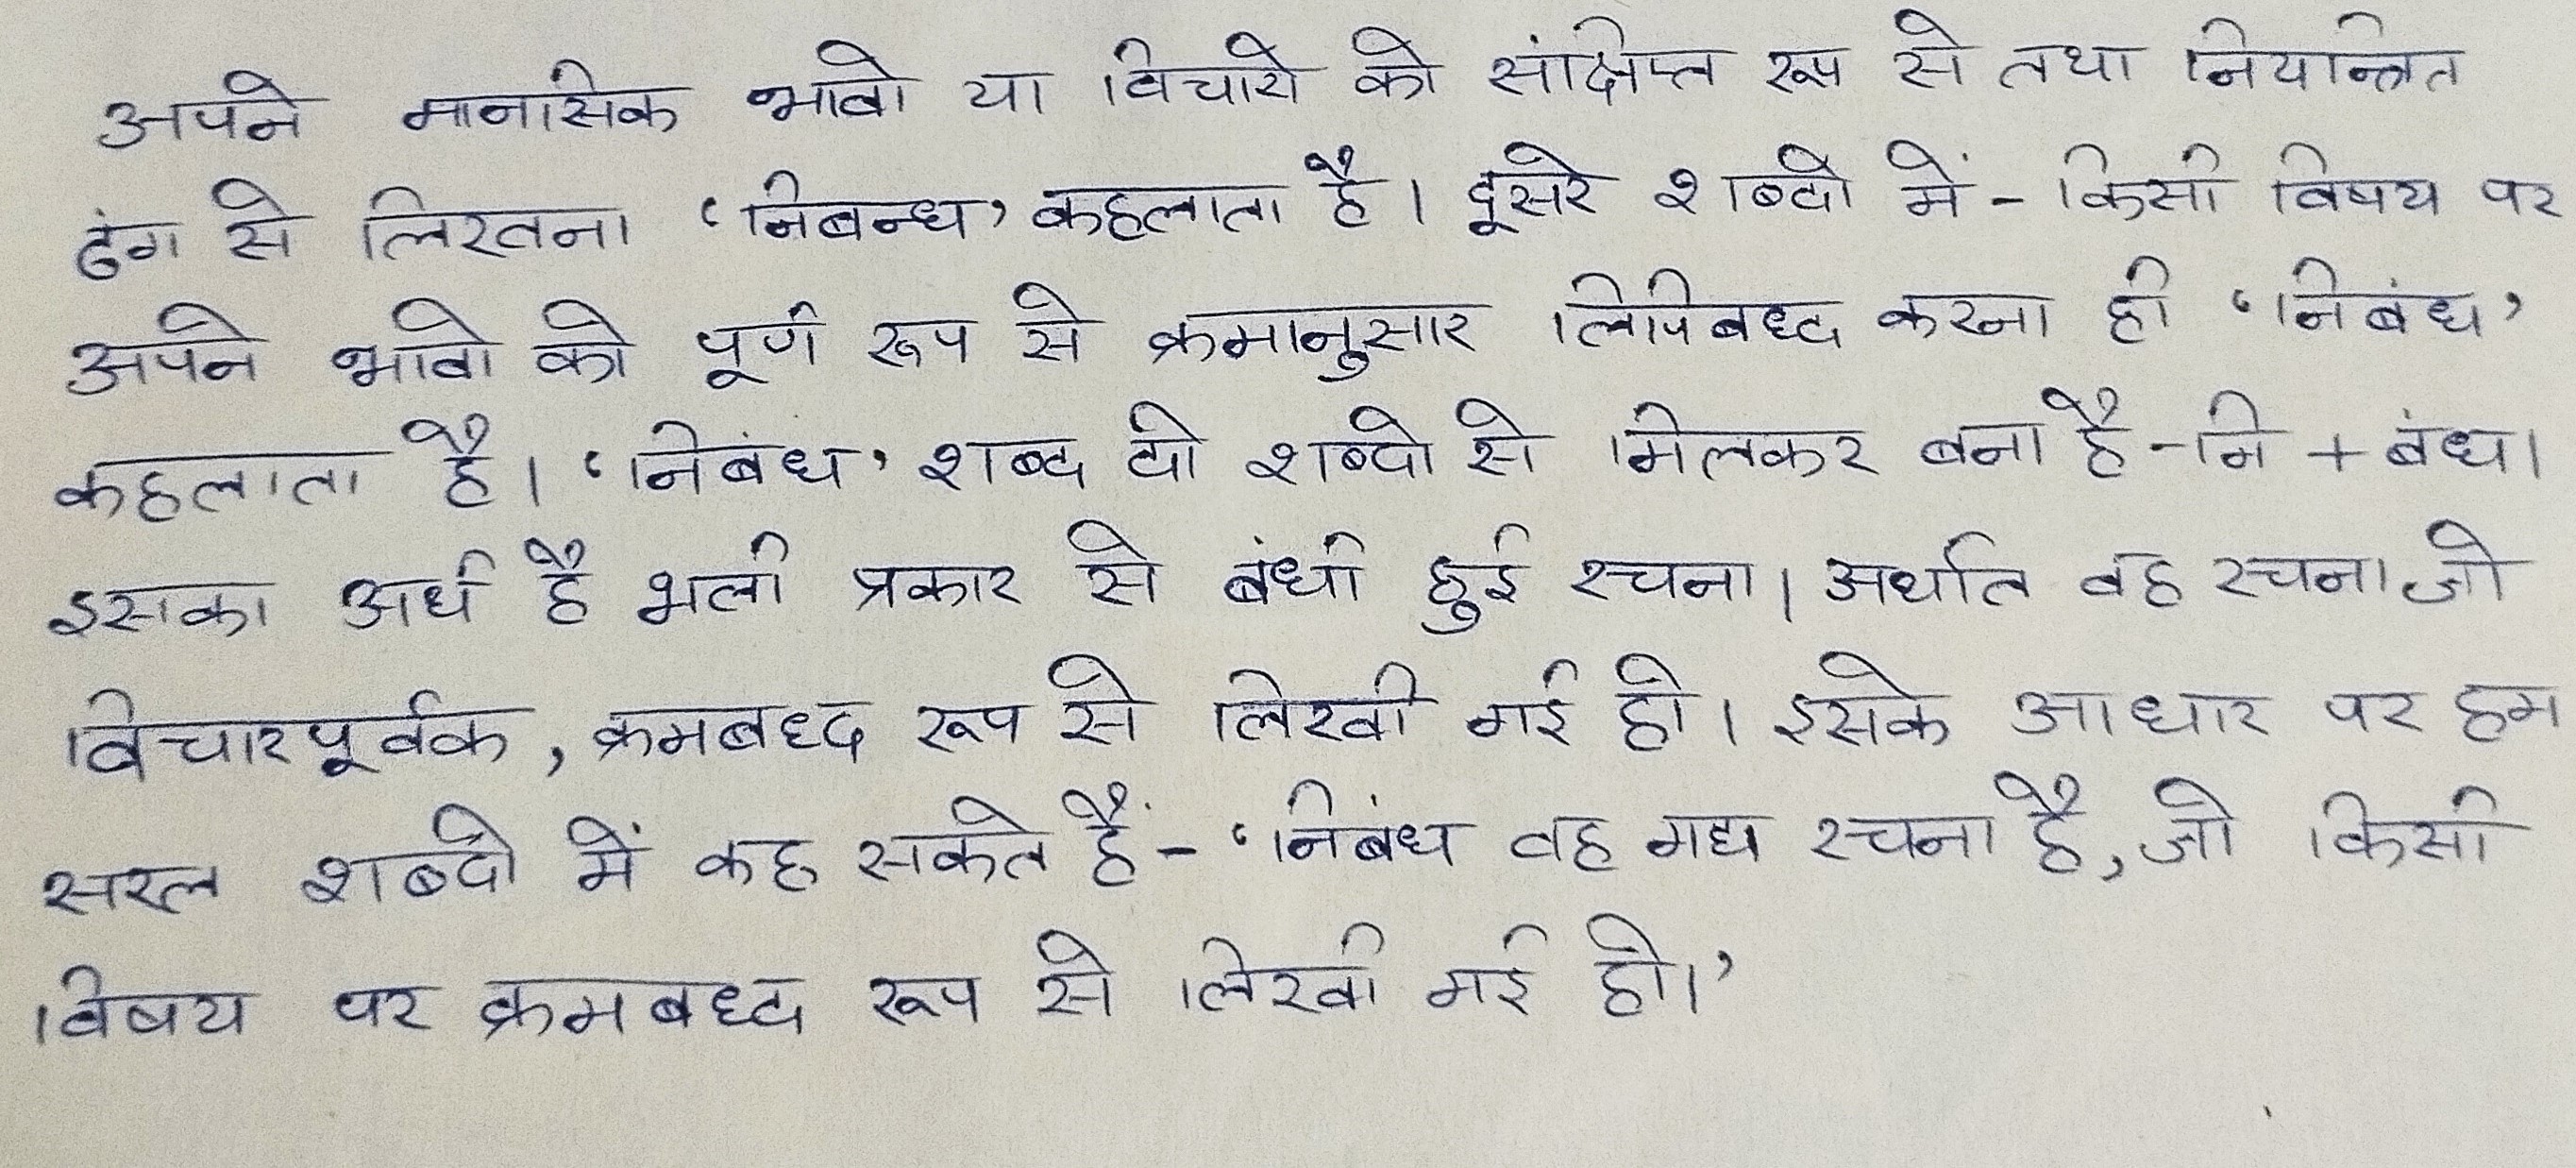 अपने मानसिक भावो या विचारो को संक्षिप्त रूप से तथा नियन्त्रित
ढंग से लिखना ‘निबन्ध’ कहलाता है। दूसरे शब्दो में - किसी विषय पर
अपने भावो को पूर्ण रूप से क्रमानुसार लिपिबध्द करना ही ‘निबंध’
कहलाता है। ‘निबंध’ शब्द दो शब्दो से मिलकर बना है - नि + बंध।
इसका अर्थ है भली प्रकार से बंधी हुई रचना। अर्थात वह रचना जो
विचारपूर्वक, क्रमबध्द रूप से लिखी गई हो। इसके आधार पर हम
सरल शब्दो में कह सकते हैं - ‘निबंध वह गद्य रचना है, जो किसी
विषय पर क्रमबध्द रूप से लिखी गई हो।’